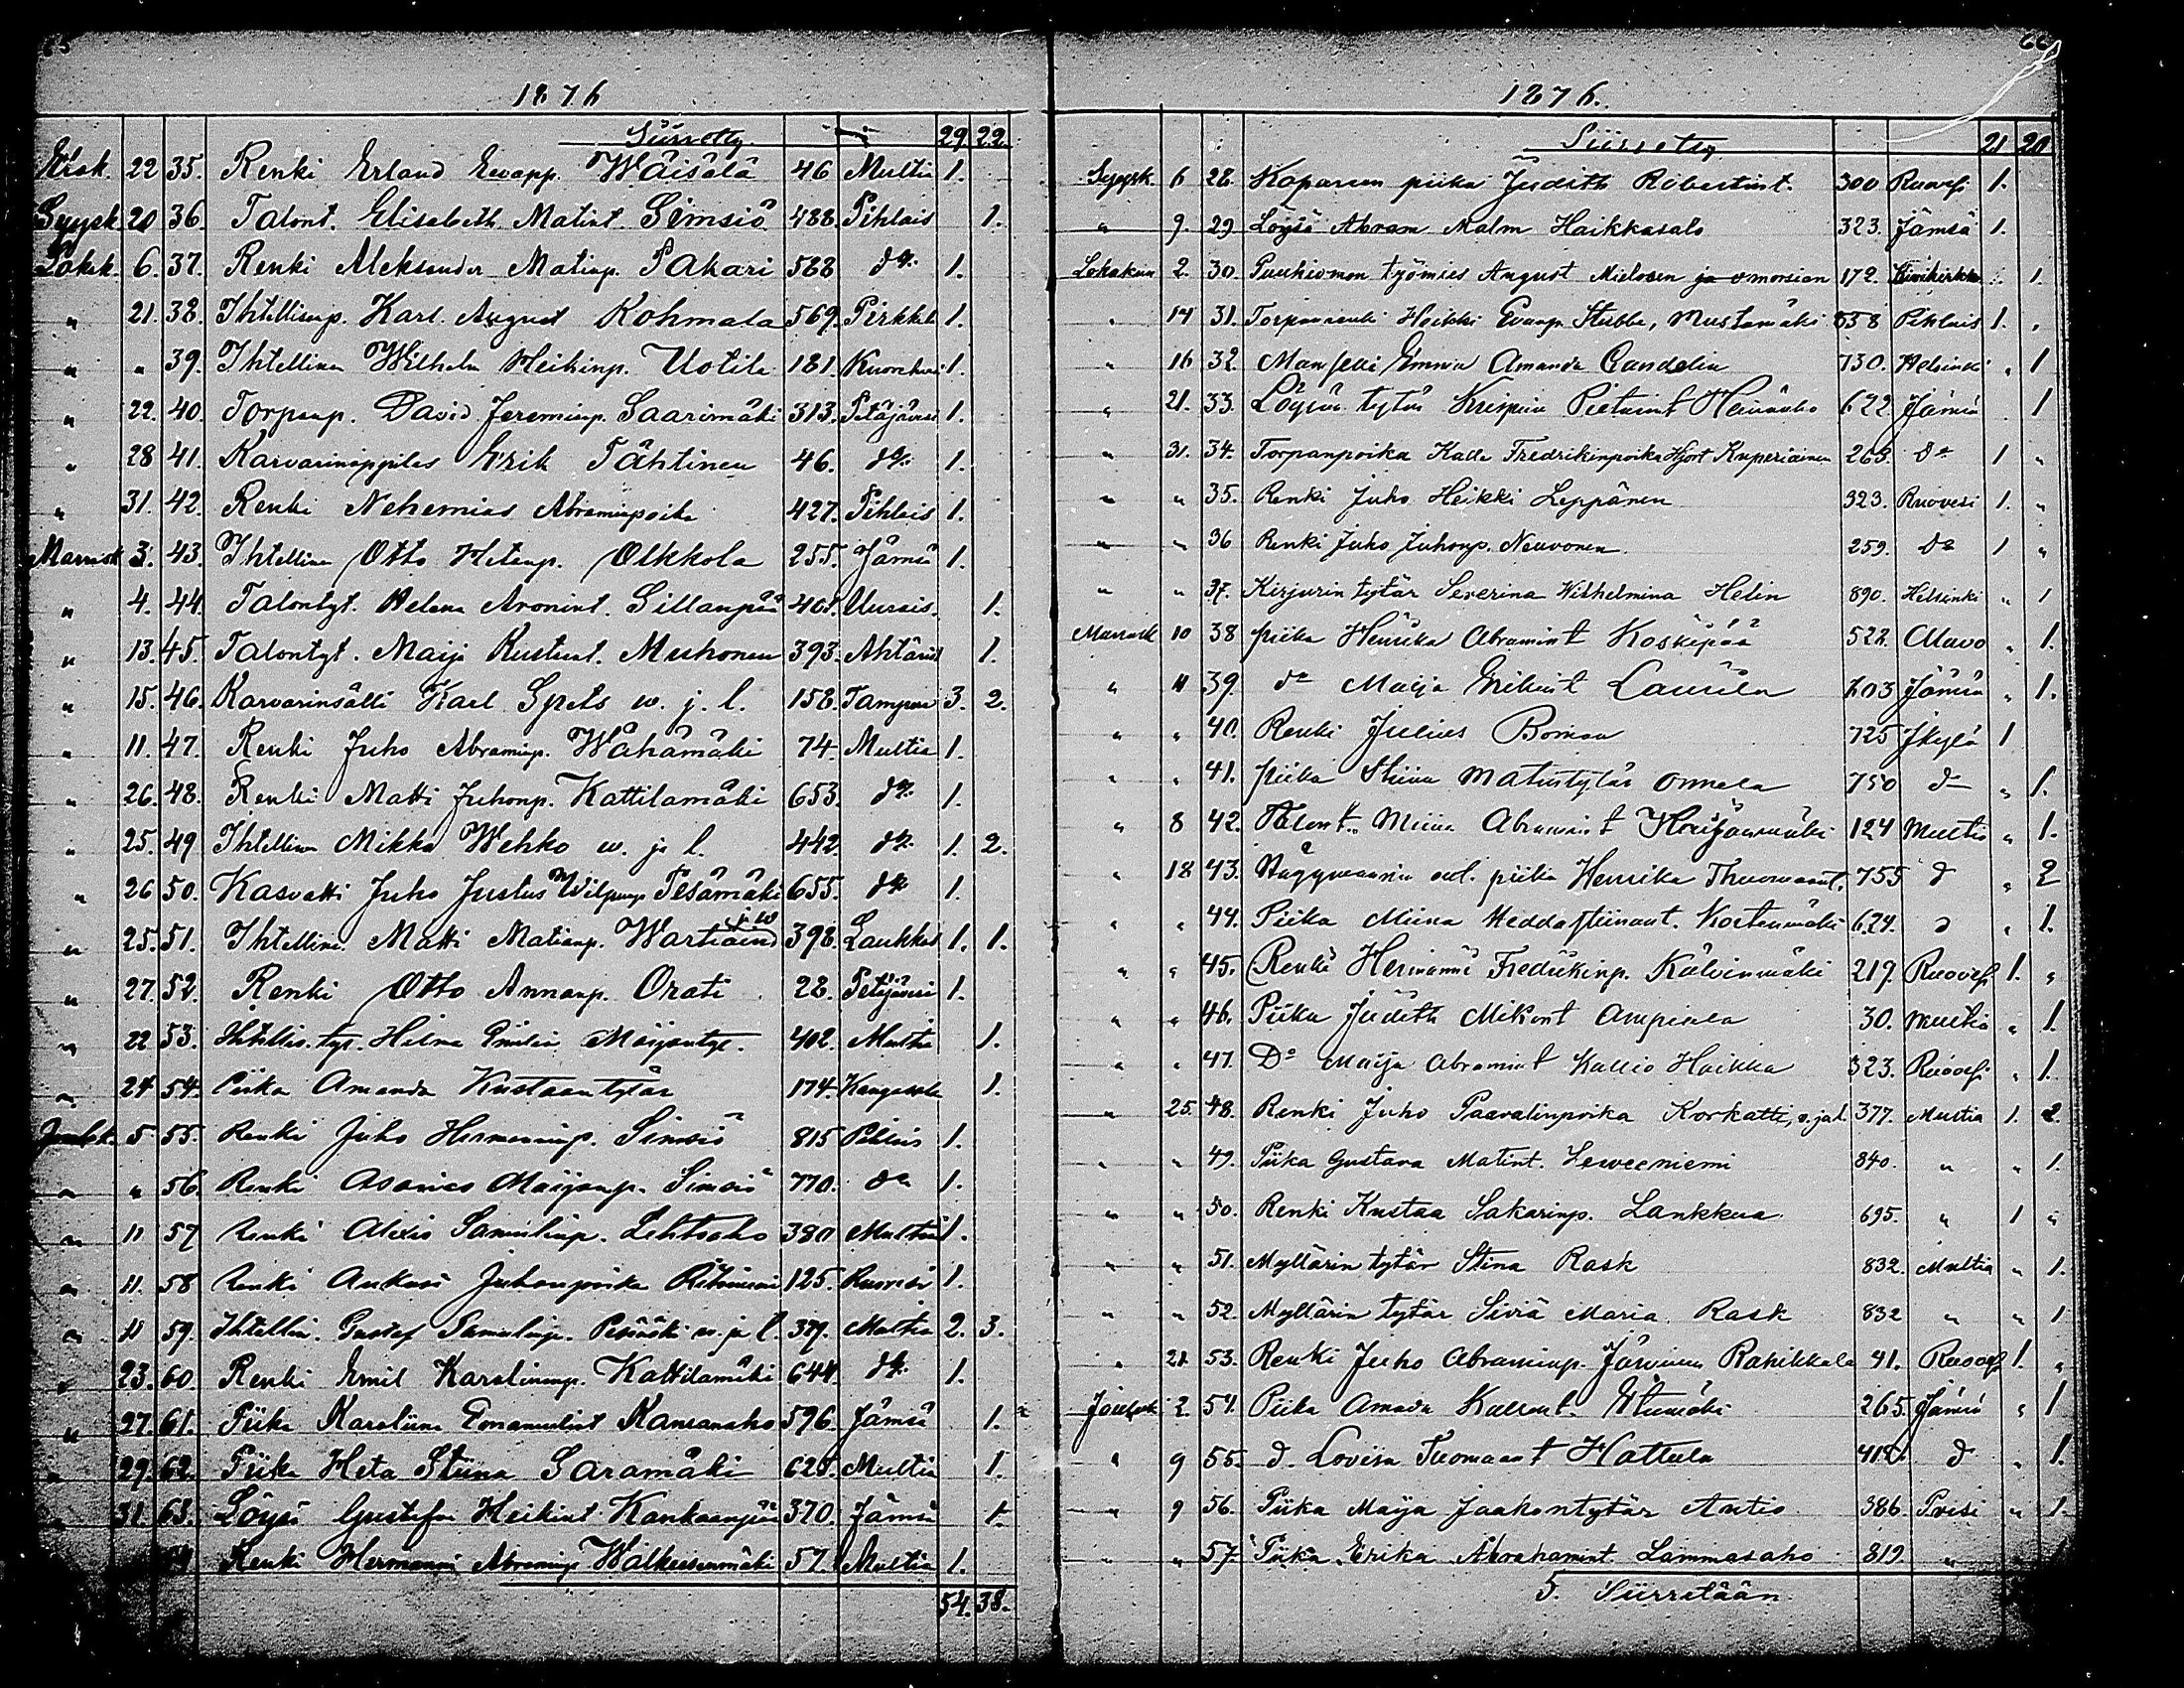 65
1876
Siirretty 29. 22.
Elok. 22 35. Renki Erland Evapp. Wäisälä 46 Multia 1.
Syysk. 20 36. Talont. Elisabeth Matint. Simsiö 488. Pihlais 1.
Lokak. 6. 37. Renki Aleksander Matinp. Pakari 588 do. 1.
" 21. 38. Ihtellisnp. Karl August Kohmala 569. Pirkkala 1.
" " 39. Ihtellinen Wilhelm Heikinp. Uotila 181. 1.
" 22. 40. Torpanp. David Jeremianp. Saarimäki 313. Petäjävesi 1.
" 28 41. Karvarinoppilas Erik Tähtinen 46. do. 1.
" 31. 42. Renki Nehemias Abraminpoika 427. Pihlais 1.
Marrask 3. 43. Ihtellinen Otto Hetanp. Olkkola 255. Jämsä 1.
" 4. 44. Talontyt. Helena Aronint. Sillanpää 401. Uurais. 1.
" 13. 45. Talontyt. Maija Kustaat. Muhonen 393. Ahtäris 1.
" 15. 46. Karvarinsälli Karl Spets w. j. l. 158. Tampere 3. 2.
" 11. 47. Renki Juho Abraminp. Wähämäki 74. Multia 1.
" 26. 48. Renki Matti Juhonp. Kattilamäki 653. do. 1.
" 25. 49 Ihtellinen Mikko Wehko w. ja l. 442. do. 1. 2.
" 26 50. Kasvatti Juho Justus Wilpunp Pesämäki 655. do. 1.
" 25. 51. Ihtellinen Matti Matianp. Wartiainen j. w 398. Laukkaa 1. 1.
" 27. 52. Renki Otto Annanp. Orati 28. Petäjävesi 1.
" 22 53. Ihtellis. tyt. Hilma Emilia Maijantyt. 402. Multia 1.
" 24 54. Piika Amanda Kustaantytär 174. Kangasala 1.
Jouluk. 5 55. Renki Juho Hermanninp. Simsiö 815 Pihlais 1.
" " 56. Renki Asarias Maijanp. Simsiö 770. do 1.
" 11 57 Renki Alexis Samulinp. Lehtoaho 380 Multia 1.
" 11. 58 Renki Aukusi Juhonpoika 125. Ruovesi 1.
" 11 59. Ihtellin. Gustaf Samulinp. w. ja l. 379. Multia 2. 3.
" 23. 60. Renki Emil Karolinanp. Kattilamäki 644 do. 1.
" 27. 61. Piika Karoliina Emanuelint Kansanaho 596. Jämsä 1.
" 29. 62. Piika Heta Stiina Saramäki 628. Multia 1.
" 31. 63. Löysä Gustafva Heikint Kankaanpää 370. Jämsä 1.
Renki Hermanni Abraminp Walkeisenmäki 57. Multia 1.
54. 38.
66
1876.
Siirretty 21 20
Syysk. 6 28. Kapareen piika Judith Robertint. 300 Ruovesi 1.
" 9. 29 Löysä Abram Malm Haikkasalo 323. Jämsä 1.
Lokakuu 2. 30. työmies August Mielosen ja morsian 172. 1.
" 14 31. Torpanrenki Heikki Evanp. Stubbe, Mustamäki 558 Pihlais 1. "
" 16 32. Mamselli Emma Amanda Candelin 730. Helsinki " 1
" 21. 33. Löysän tytär Pietarint 622. Jämsä 1
" 31. 34. Torpanpoika Kalle Fredrikinpoika Hjort Kuperiainen 263. do 1 "
" " 35. Renki Juho Heikki Leppänen 323. Ruovesi 1. "
" " 36 Renki Juho Juhonp. Neuvonen 259. do 1 "
" " 37. Kirjurin tytär Severina Wilhelmina Helin 890. Helsinki " 1
Marrask 10 38 piika Henrika Abramint Koskipää 522. Alavo " 1.
" 11 39 do Maija Erikint Laurila 603 Jämsä " 1.
" " 40. Renki Julius Boman 725 Jkylä 1
" " 41. piika Stiina Matintytär Onnela 750 do " 1.
" 8 42. Talont. Miina Abramint 124 Multia " 1.
" 18 43. aul. piika Henrika Thuomaant. 755 d " 2
" " 44. Piika Miina Heddastiinant. 624. d " 1.
" " 45. Renki Hermanni Fredrikinp. Kälvinmäki 219. Ruovesi 1. "
" " 46. Piika Judith Mikont Ampiala 30. Multia " 1.
" " 47. Do Maija Abramint Kallio Haikka 323. Ruovesi " 1.
" 25. 48. Renki Juho Paavalinpoika Korkatti, v. ja l. 377. Multia 1. 2.
" " 49. Piika Gustava Matint. Leweeniemi 840. " " 1.
" " 50. Renki Kustaa Sakarinp. Lankkua 695. " 1 "
" " 51. Myllärin tytär Stina Rask 832. Multia " 1.
" " 52. Myllärin tytär Siviä Maria Rask 832 " " 1
" 21 53. Renki Juho Abraminp. Järvinen Rahikkala 41. Ruovesi 1. "
Jouluk 2. 54. Piika Amanda Etumäki 265. Jämsä " 1
" 9 55. d. Lovisa Tuomaant Hattula 412. d " 1.
" 9 56. Piika Maija Jaakontytär Antio 386 Pvesi " 1.
" " 57. Piika Erika Abrahamint. Lammasaho 819 "
5. Siirretään